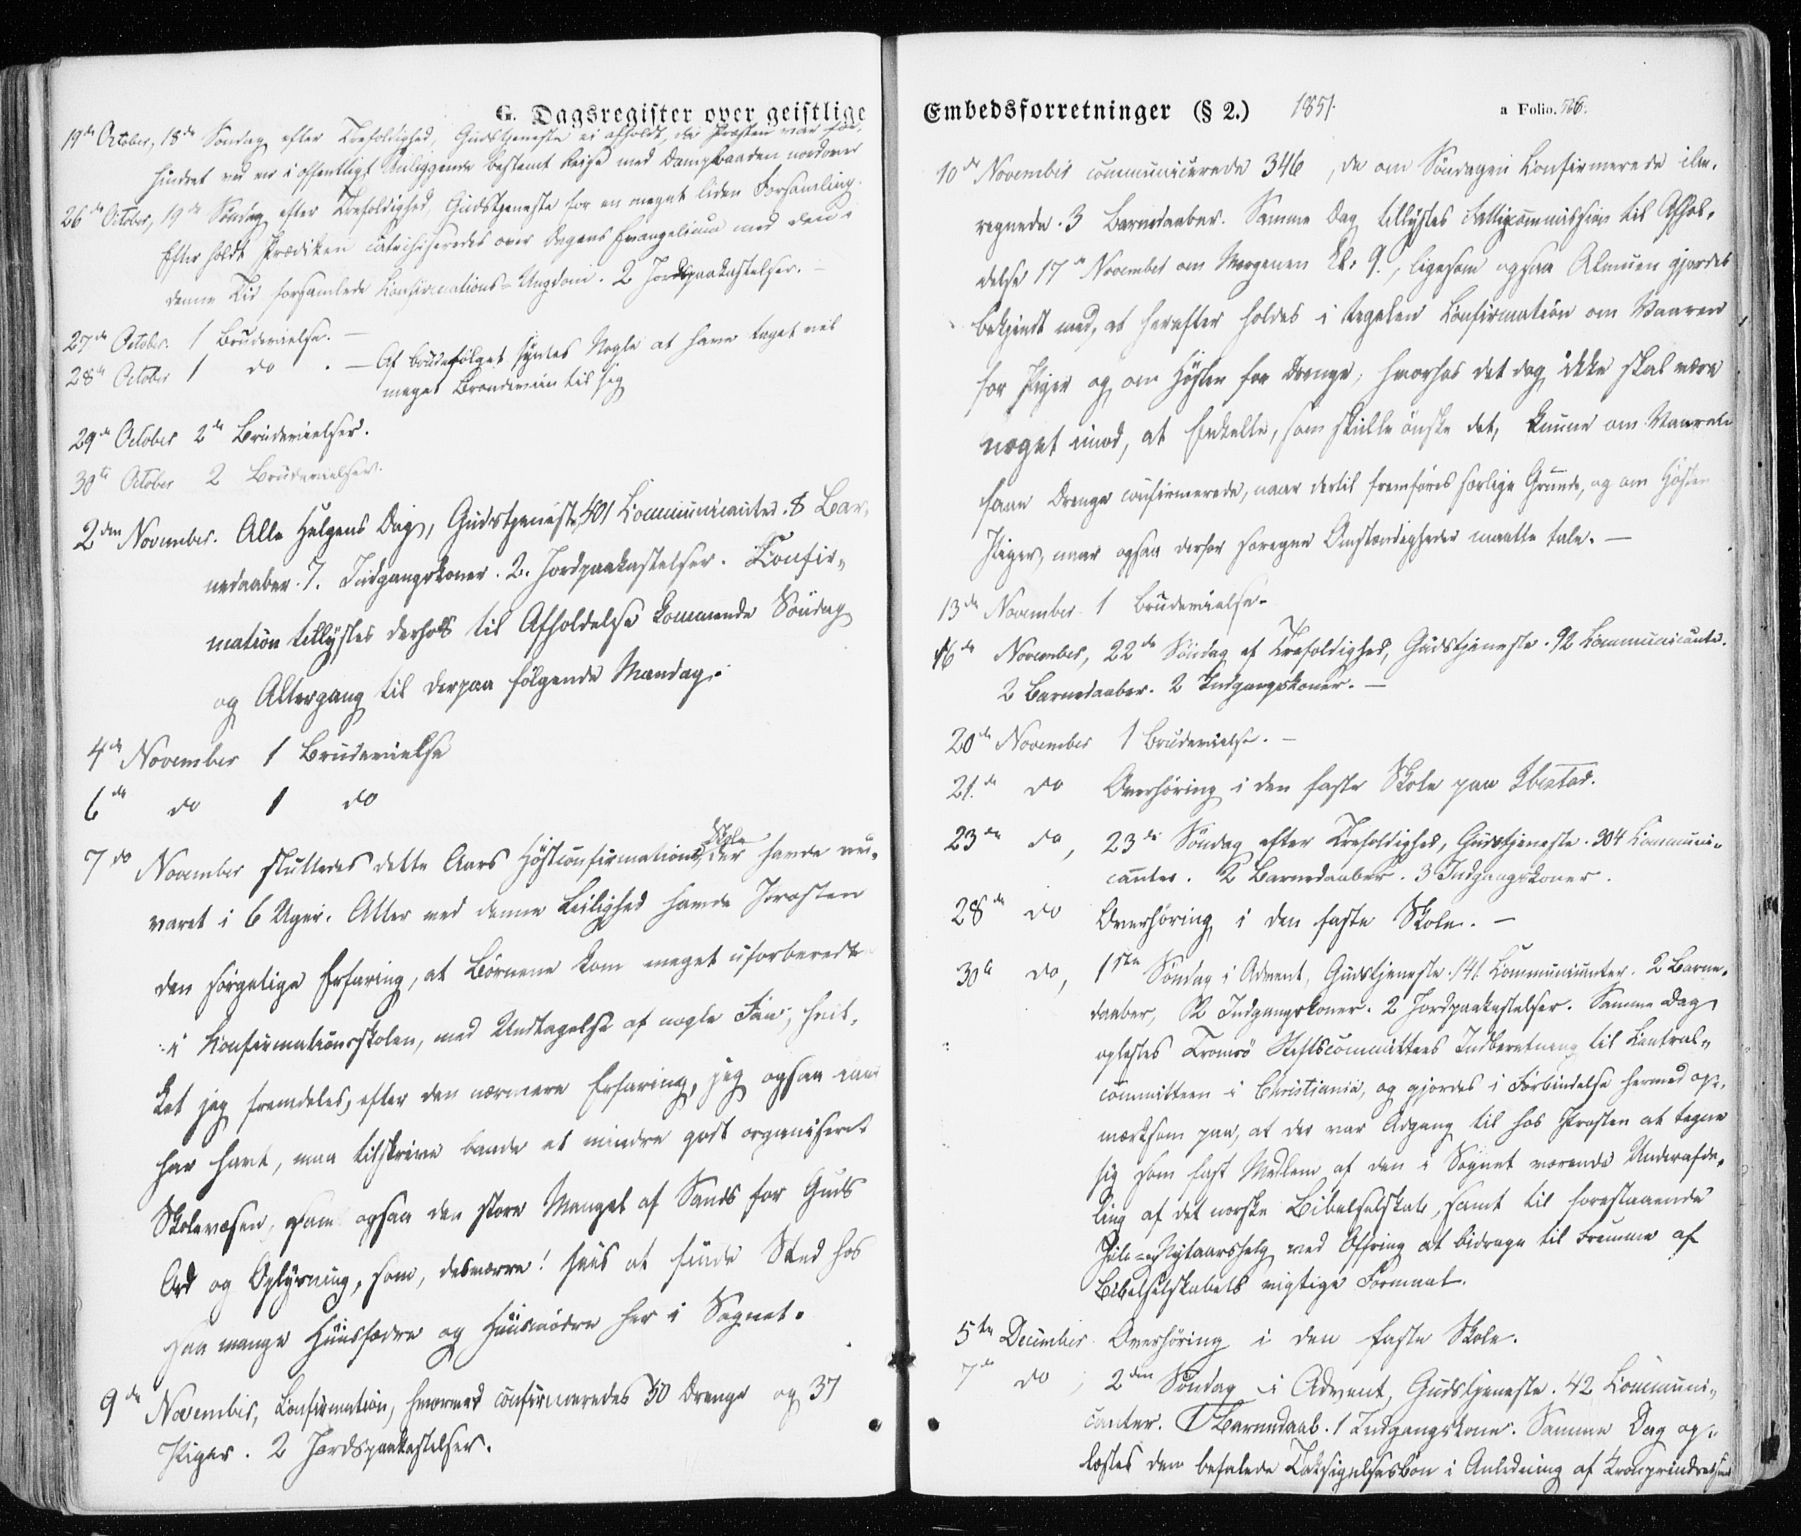 G. Dagsregister over geistlige
19de October, 18de Søndag efter Trefoldighed, Gudstjeneste ei afholdt, da Præsten var for-
hindret ved en i offentligt Anliggende bestemt Reise med Dampbaaden nordover
26de October, 19de Søndag efter Trefoldighed, Gudstjeneste for en meget liden Forsamling.
Efter holdt Prædiken catechiseredes over Dagens Evangelium med den i
denne Tid forsamlede Confirmations-Ungdom. 2 Jordpaakastelser. —
27de October. 1 Brudevielse. —
28de October 1 do. — Af Brudefølget syntes Nogle at have taget vel
meget Brændeviin til sig
29de October 2de Brudevielser.
30te October 2 Brudevielser.
2den November. Alle Helgens Dag, Gudstjeneste, 401 Communicanter. 8 Bar-
nedaaber. 7. Indgangskoner. 2. Jordpaakastelser. Confir-
mation tillystes derhos til Afholdelse kommende Søndag
og Altergang til derpaa følgende Mandag.
4de November 1 Brudevielse
6de do 1 do
7de November sluttedes dette Aars Høstconfirmations Skole, der havde nu
varet i 6 Uger. Atter ved denne Leilighed havde Præsten
den sørgelige Erfaring, at Børnene kom meget uforberedte
i Konfirmationsskolen, med Undtagelse af nogle Faa, hvil-
ket jeg fremdeles, efter den nærmere Erfaring, jeg ogsaa nu
har havt, maa tilskrive baade et mindre godt organiseret
Skolevæsen, som ogsaa den store Mangel af Sands for Guds
Ord og Oplysning, som, desværre! sees at finde Sted hos
saa mange Huusfædre og Huusmødre her i Sognet.
9de November, Confirmation, hvorved confirmeredes 30 Drenge og 37
Piger. 2 Jordspaakastelser.
Embedsforretninger (§ 2.) 1851. a Folio. 526.
10de November communicerede 346, de om Søndagen Confirmerede ibe-
regnede. 3 Barnedaaber. Samme Dag tillystes Fattigcommission til Afhol-
delse 17de November om Morgenen Kl: 9., ligesom ogsaa Almuen gjordes
bekjendt med, at herefter holdes i Regelen Confirmation om Vaaren
for Piger og om Høsten for Drenge, hvorhos det dog ikke skal være
noget imod, at Enkelte, som skulle ønske det, kunne om Vaaren
faae Drenge confirmerede, naar dertil fremføres særlige Grunde, og om Høsten
Piger, naar ogsaa derfor særegne Omstændigheder maatte tale. —
13de November 1 Brudevielse.
16de November, 22de Søndag ef Trefoldighed, Gudstjeneste. 92 Communicanter.
2 Barnedaaber. 2 Indgangskoner. —
20de November 1 Brudevielse. —
21.de do Overhøring i den faste Skole paa Ibestad.
23de do, 23de Søndag efter Trefoldighed, Gudstjeneste. 304 Communi-
canter. 2 Barnedaaber. 3 Indgangskoner.
28de do Overhøring i den faste Skole. —
30te do, 1ste Søndag i Advent, Gudstjeneste. 141. Communicanter. 2 Barne-
daaber, 2 Indgangskoner. 2 Jordpaakastelser. Samme Dag
oplæstes Tromsø Stiftscommittees Indberetning til Central-
committeen i Christiania, og gjordes i Forbindelse hermed op-
mærksom paa, at der var Adgang til hos Præsten at tegne
sig som fast Medlem af den i Sognet værende Underafde-
ling af det norske Bibelselskab, samt til forestaaende
Jule- & Nytaarshelg ved Offring at bidrage til Fremme af
Bibelselskabets vigtige Formaal.
5te December. Overhøring i den faste Skole.
7de do, 2den Søndag i Advent, Gudstjeneste. 42 Communi-
canter. 1 Barnedaab. 1 Indgangskone. Samme Dag op-
læstes den befalede Taksigelsesbøn i Anledning af Kronprindsessens